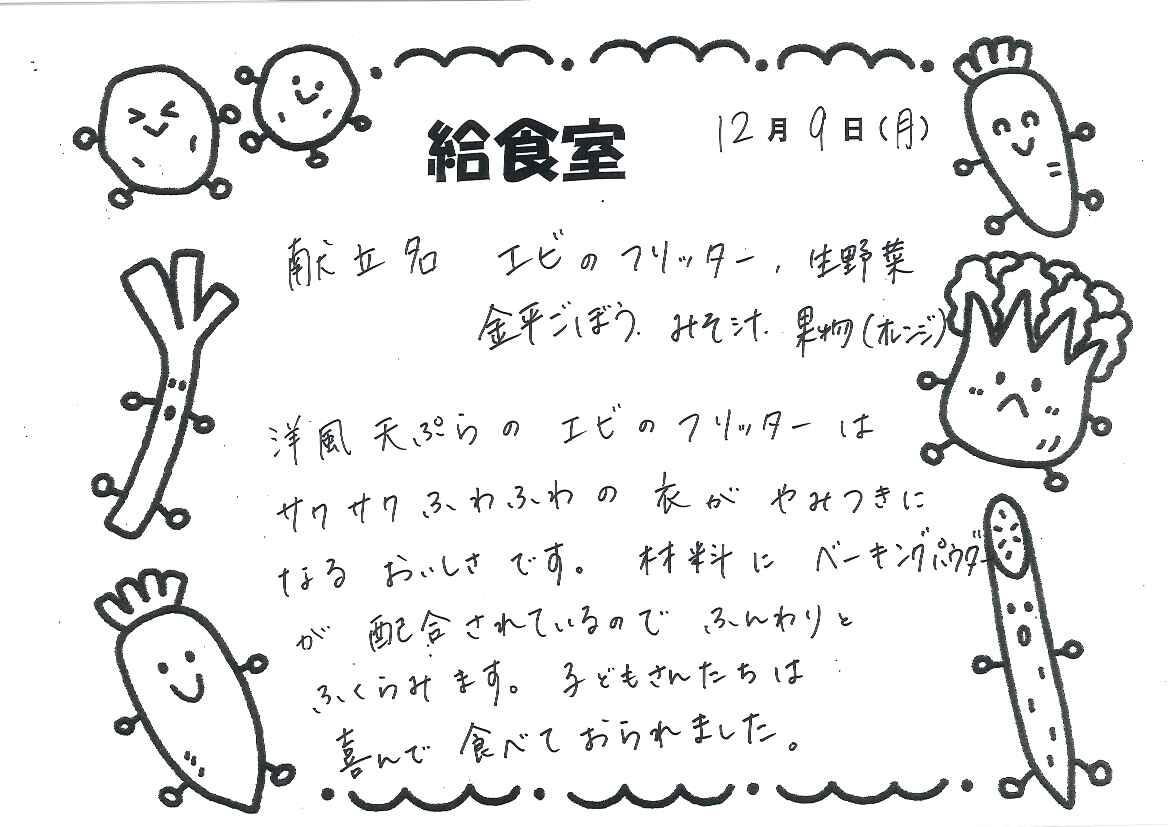 給食室
12月9日(月)
献立名 エビのフリッター、生野菜
金平ごぼう、みそ汁、果物(オレンジ)
洋風天ぷらのエビのフリッターは
サクサクふわふわの衣がやみつきに
なるおいしさです。材料にベーキングパウダー
が配合されているのでふんわりと
ふくらみます。子どもさんたちは
喜んで食べておられました。